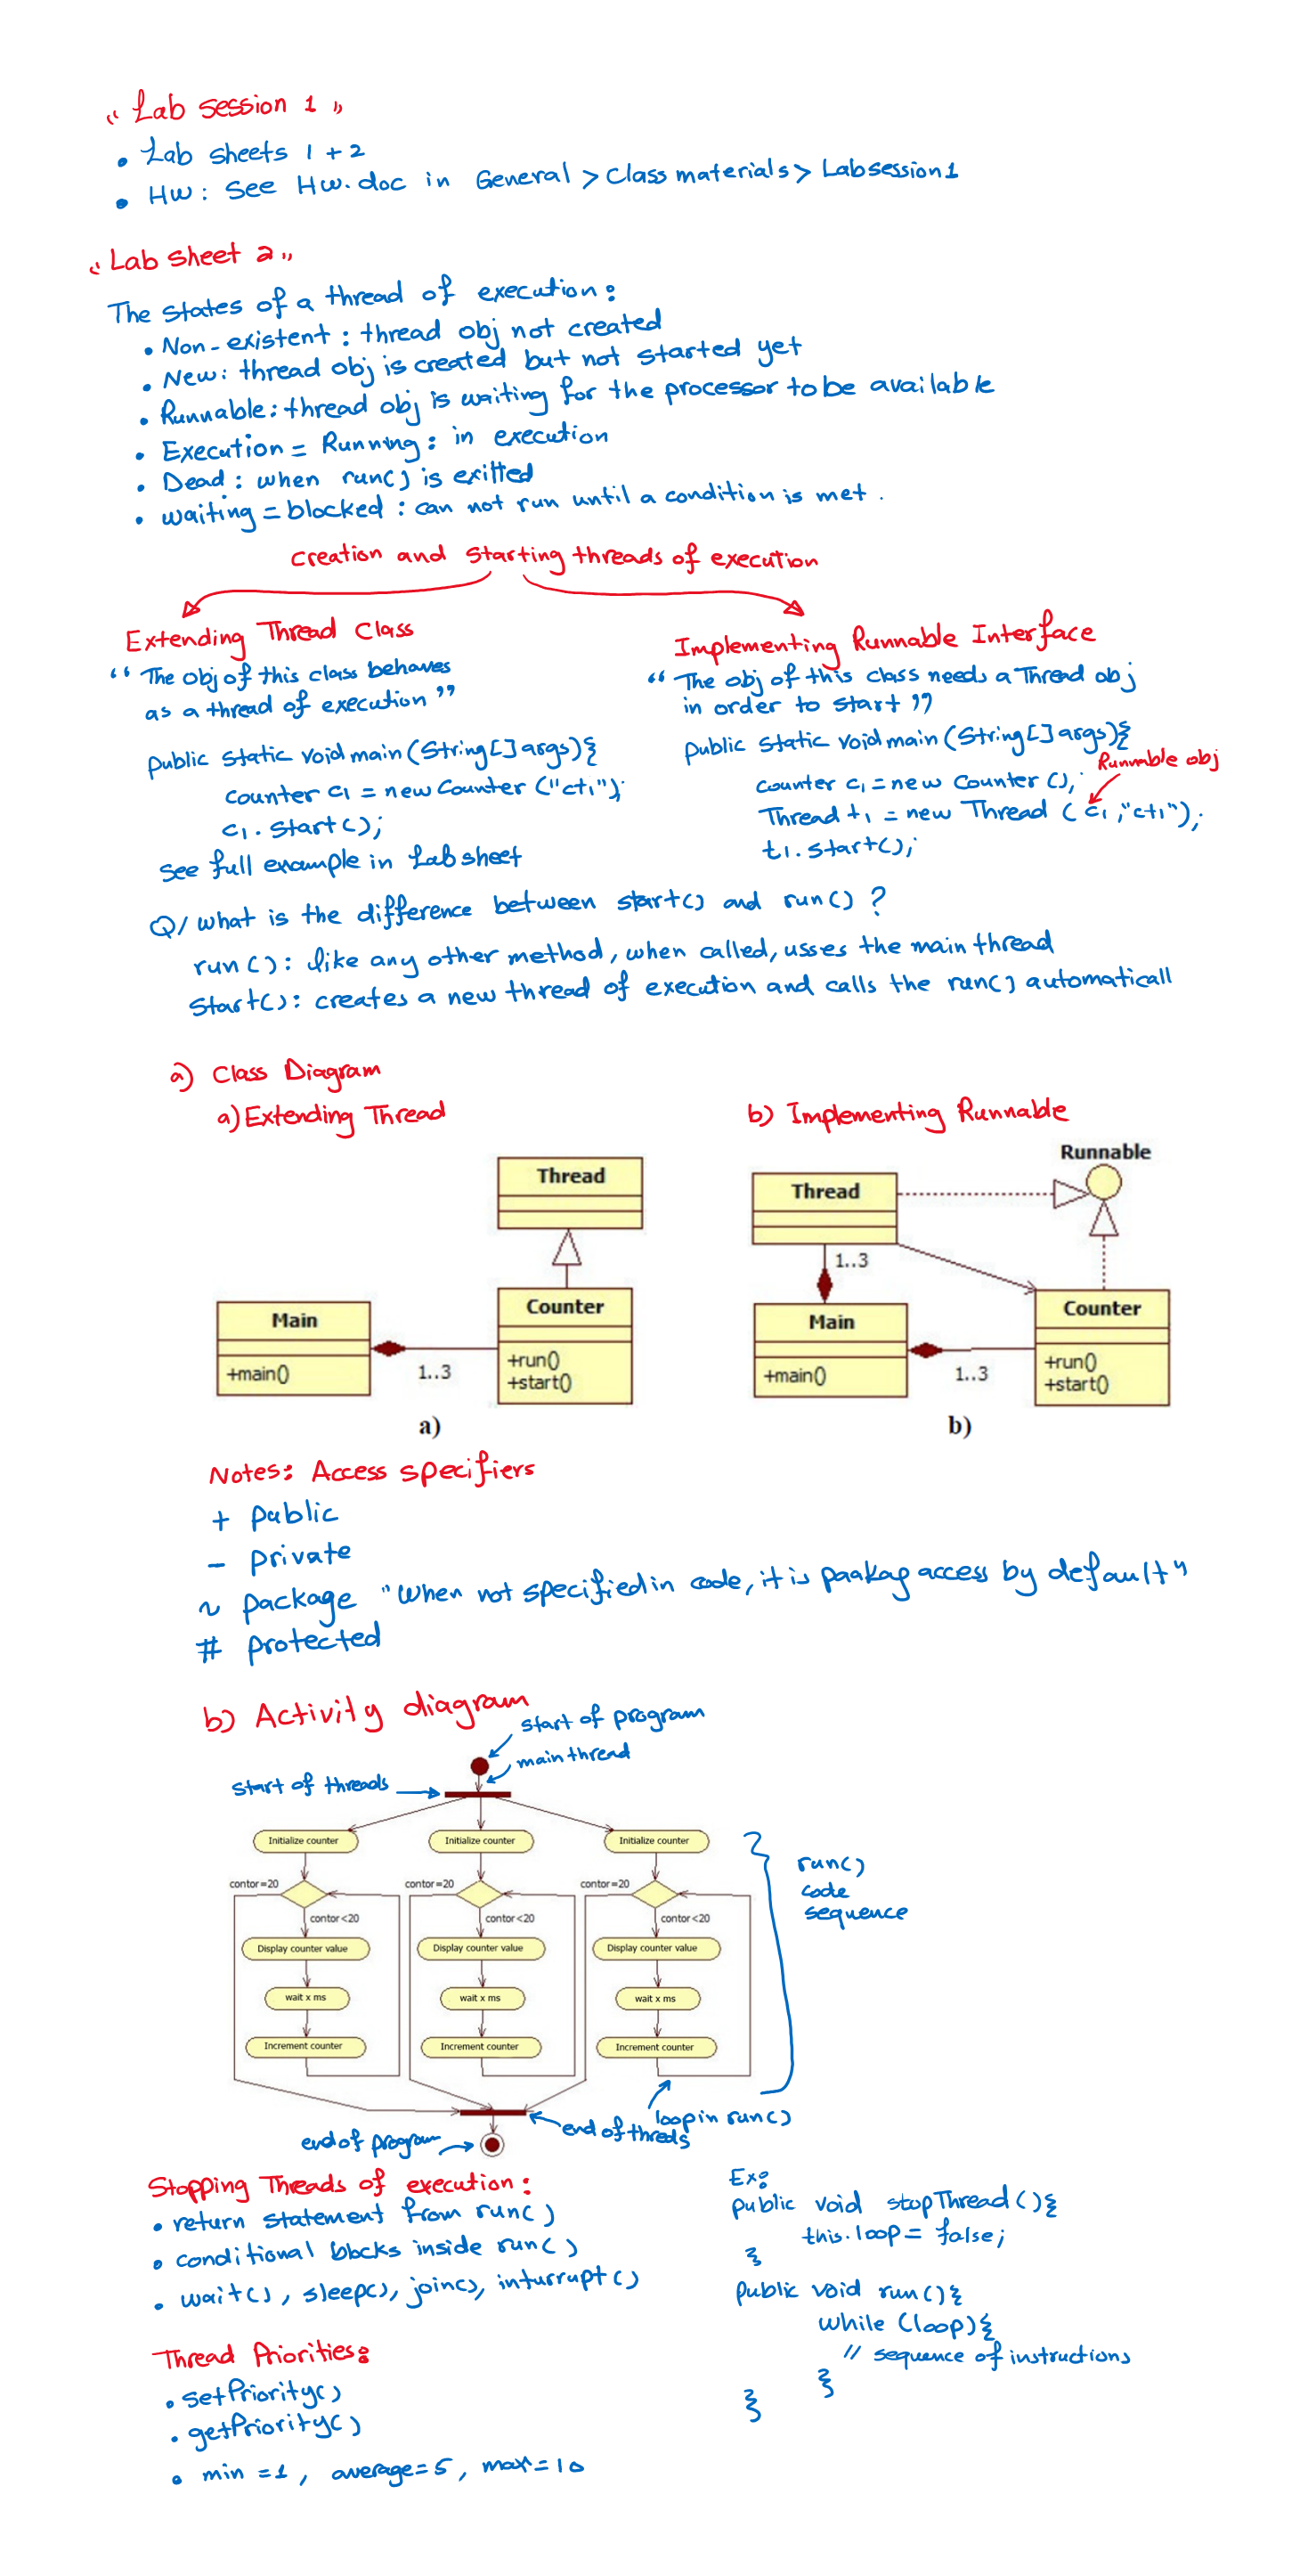 "Lab session 1"
• Lab sheets 1+2
• HW: See HW.doc in General > Class materials > Lab session1
"Lab sheet 2"
The states of a thread of execution:
• Non-existent: thread obj not created
• New: thread obj is created but not started yet
• Runnable: thread obj is waiting for the processor to be available
• Execution = Running: in execution
• Dead: when run() is exitted
• waiting = blocked: can not run until a condition is met.
Creation and starting threads of execution
Extending Thread Class
"The obj of this class behaves
as a thread of execution"
public static void main (String[] args){
counter c1 = new Counter ("ct1");
c1.start();
see full example in Lab sheet
Implementing Runnable Interface
"The obj of this class needs a Thread obj
in order to start"
public static void main (String[] args){
Runnable obj
counter c1 = new Counter ();
Thread t1 = new Thread (c1,"ct1");
t1.start();
Q/ what is the difference between start() and run() ?
run(): like any other method, when called, usses the main thread
start(): creates a new thread of execution and calls the run() automaticall
a) Class Diagram
a) Extending Thread
b) Implementing Runnable
Thread
Main
+main()
1..3
Counter
+run()
+start()
a)
Runnable
Thread
1..3
Main
+main()
1..3
Counter
+run()
+start()
b)
Notes: Access specifiers
+ public
- private
~ package "When not specified in code, it is paakag access by default"
# protected
b) Activity diagram
start of program
main thread
start of threads
Initialize counter
Initialize counter
Initialize counter
contor=20
contor=20
contor=20
contor<20
contor<20
contor<20
Display counter value
Display counter value
Display counter value
wait x ms
wait x ms
wait x ms
Increment counter
Increment counter
Increment counter
run()
code
sequence
loop in run()
end of threds
end of program
Stopping Threads of execution:
• return statement from run()
• conditional blocks inside run()
• wait(), sleep(), join(), inturrupt()
Thread Priorities:
• setPriority()
• getPriority()
• min =1, average=5, max=10
Ex:
public void stopThread(){
this.loop = false;
}
public void run(){
while (loop){
// sequence of instructions
}
}